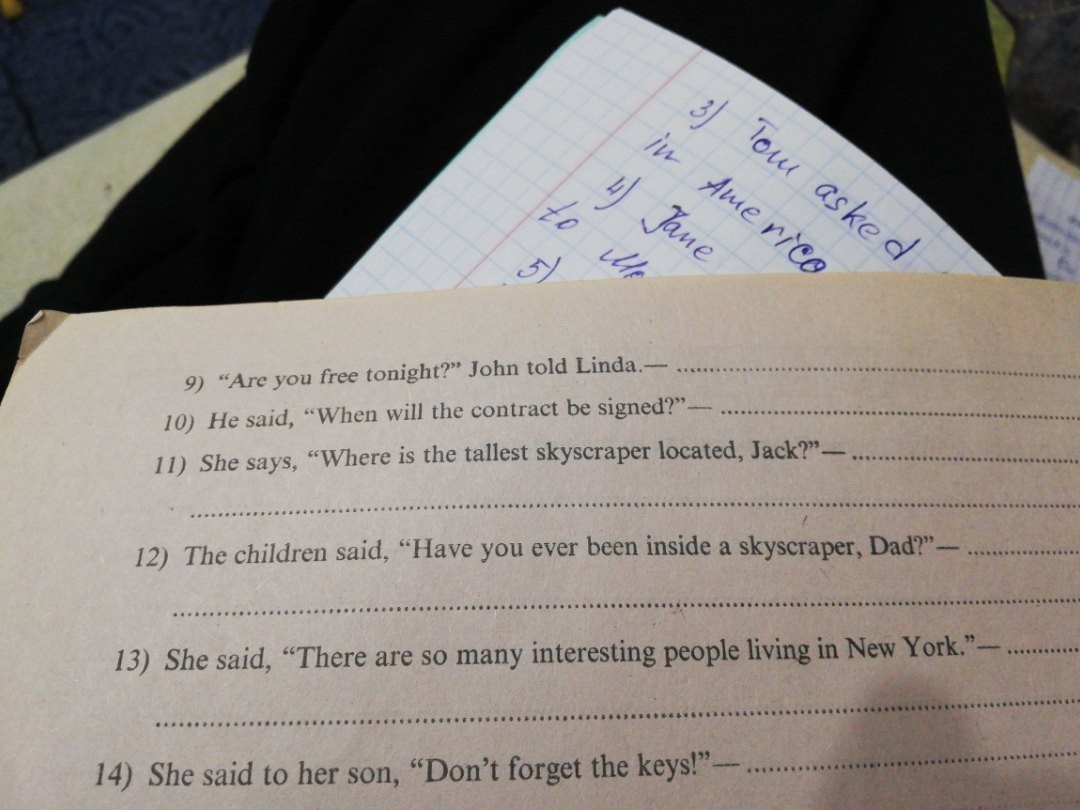 3) Tom asked
in America
4) Jane
to
5)
9) “Are you free tonight?” John told Linda.— ........................
10) He said, “When will the contract be signed?”— ........................
11) She says, “Where is the tallest skyscraper located, Jack?”— ........................
........................
12) The children said, “Have you ever been inside a skyscraper, Dad?”— ............
........................
13) She said, “There are so many interesting people living in New York.”— ............
........................
14) She said to her son, “Don’t forget the keys!”— ........................